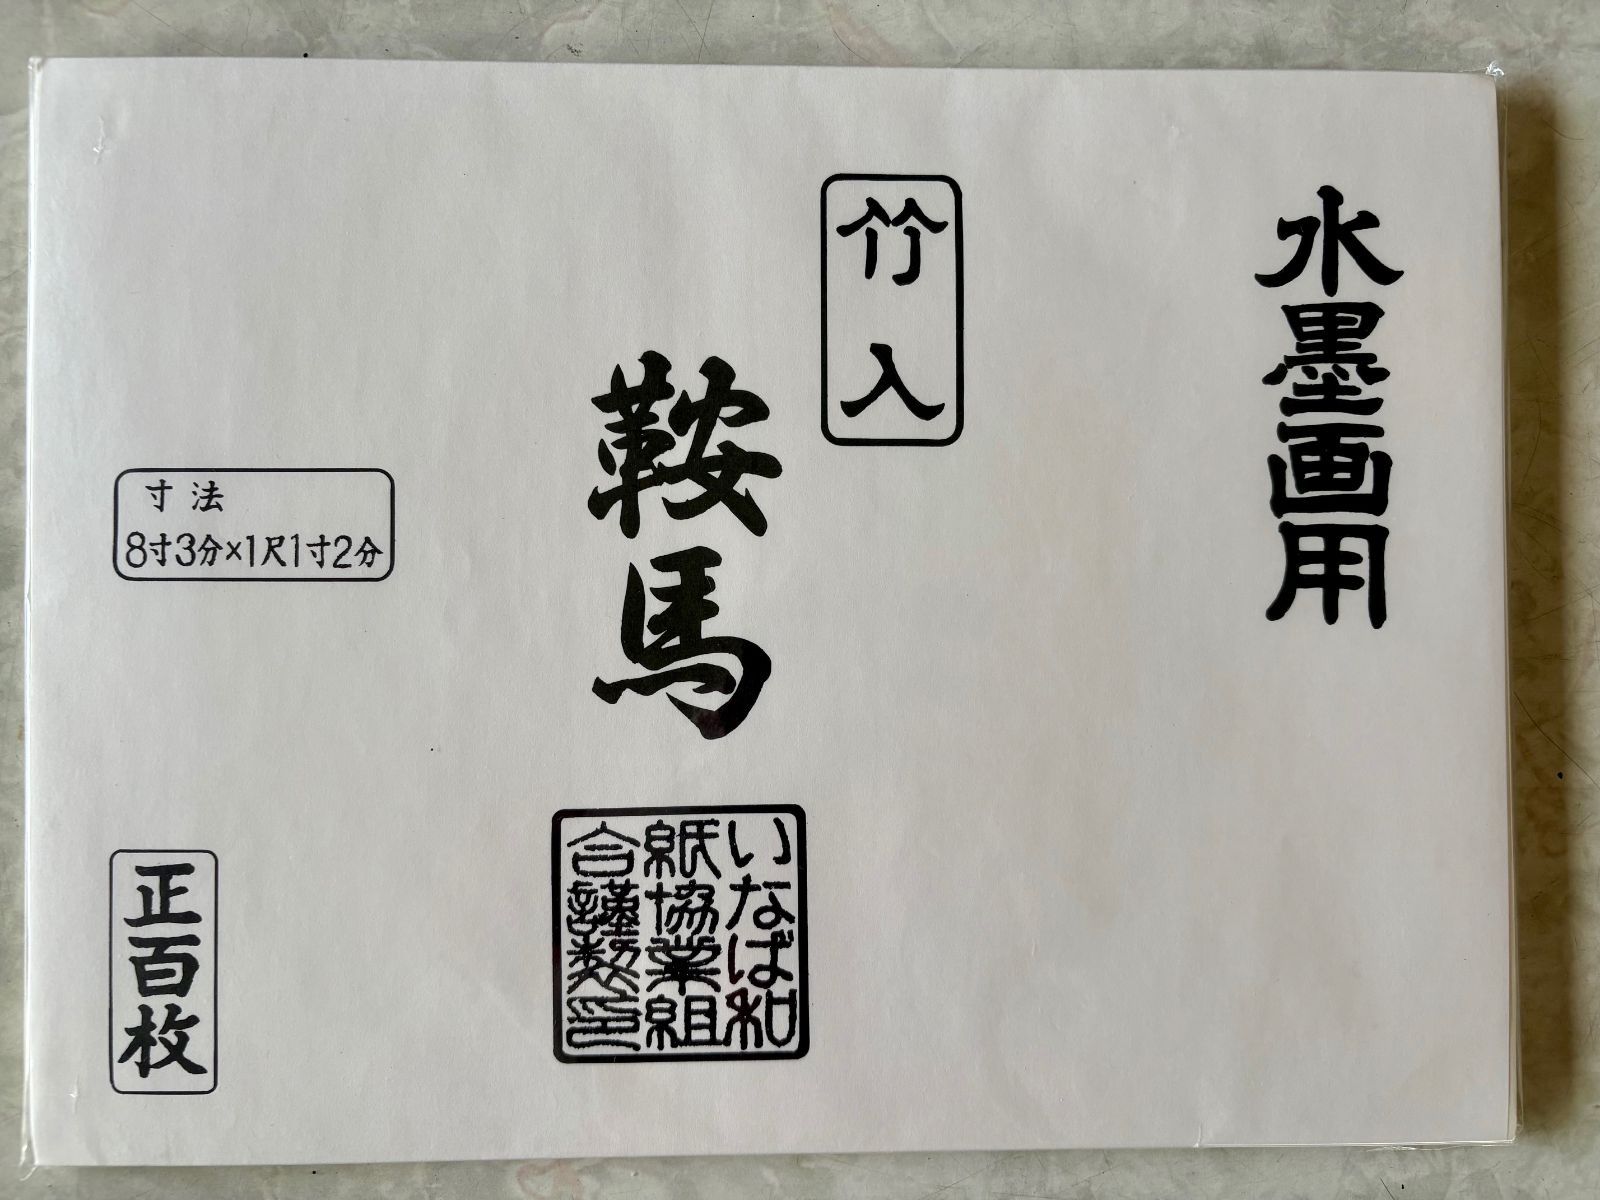 水墨画用
竹入
鞍馬
いなば和
紙協業組
合謹製印
寸法
8寸3分×1尺1寸2分
正百枚